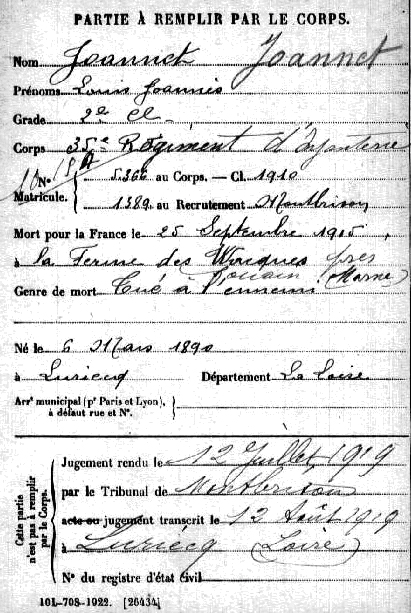 PARTIE À REMPLIR PAR LE CORPS.
Nom Joannet Joannet
Prénoms Louis Joannès
Grade 2e Cl
Corps 35e Régiment d'Infanterie
N° Matricule. 5366 au Corps. — Cl. 1910
1389 au Recrutement Montbrison
Mort pour la France le 25 Septembre 1915
à la Ferme des Wacques près
Souain (Marne)
Genre de mort Tué à l'ennemi
Né le 6 Mars 1890
à Luriecq Département La Loire
Arrt municipal (pr Paris et Lyon),
à défaut rue et N°.
Cette partie n'est pas à remplir par le Corps.
Jugement rendu le 12 Juillet 1919
par le Tribunal de Montbrison
acte ou jugement transcrit le 12 Août 1919
à Luriecq (Loire)
N° du registre d'état civil
101-708-1922. [26434]